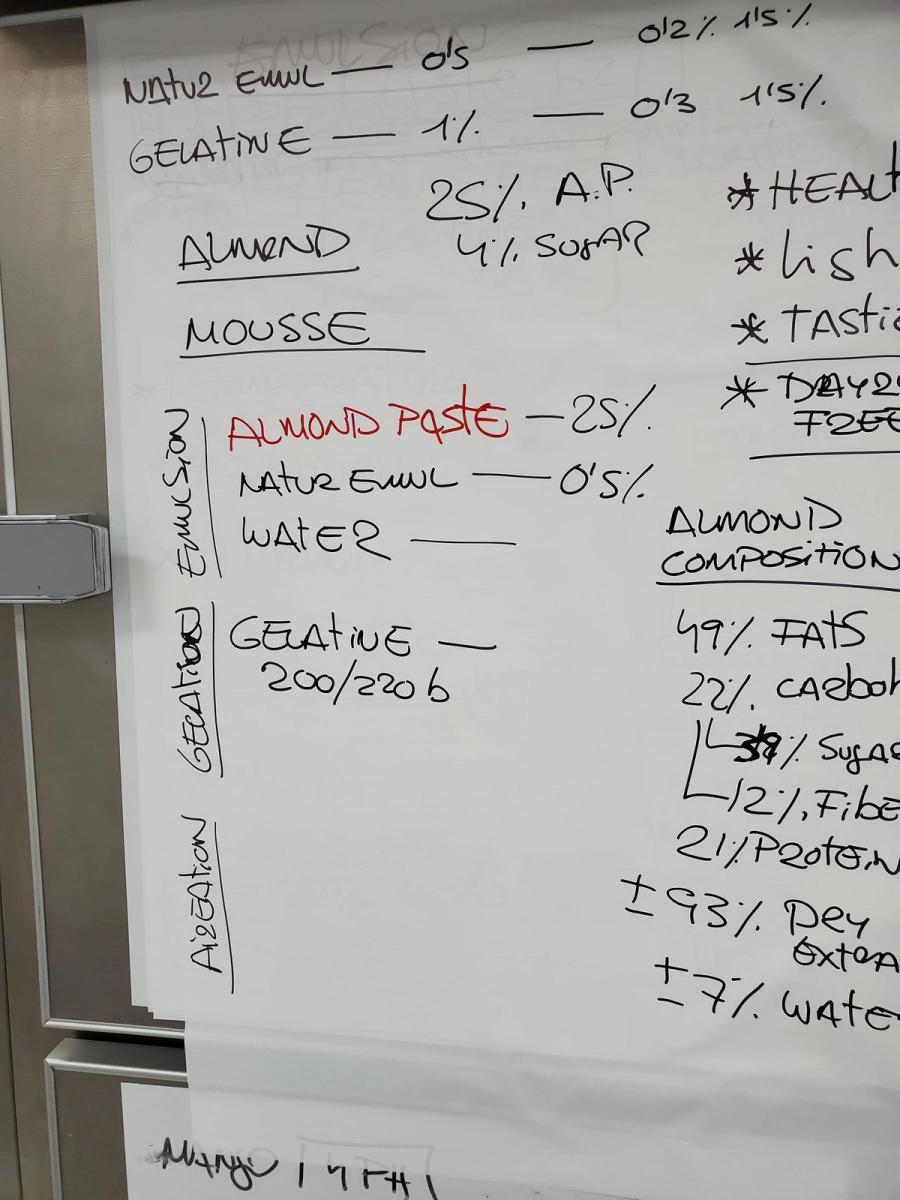 NATUR EMUL — 0'5 — 0'2% 1'5%
GELATINE — 1% — 0'3 1'5%.
25% A.P.
4% SUGAR
ALMOND
MOUSSE
* HEALT
* LIGH
* TASTIE
* DAYRY
FREE
EMULSION
ALMOND PASTE — 25%
NATUR EMUL — 0'5%
WATER —
GELATION
GELATINE —
200/220 b
AIREATION
ALMOND
COMPOSITION
49% FATS
22% CARBOH
% SUGAR
12% FIBE
21% PROTEIN
± 93% DRY
EXTRA
± 7% WATE